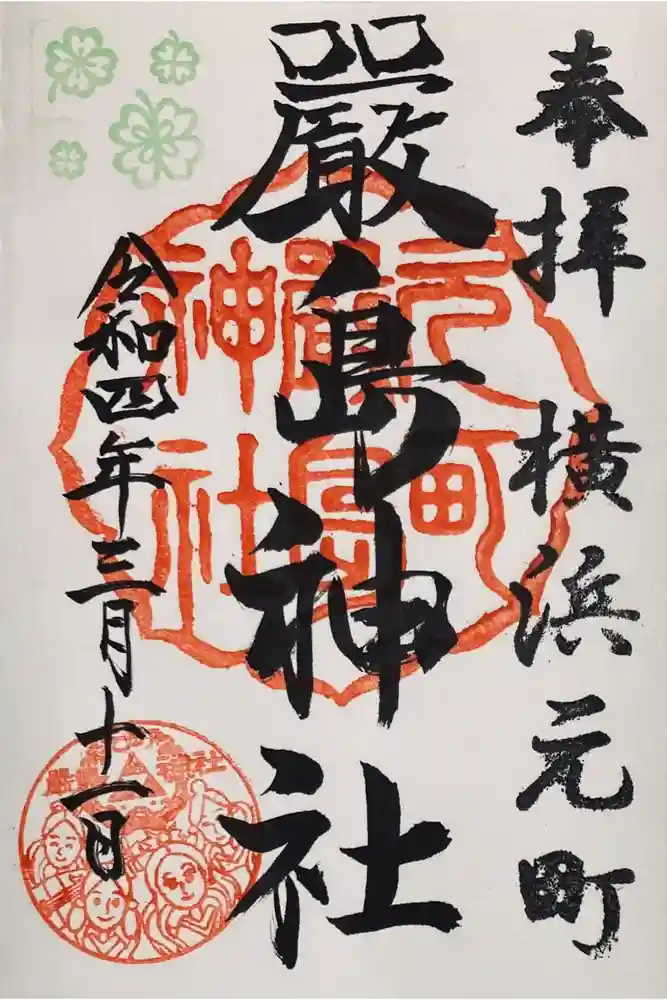 奉拝 横浜元町
嚴島神社
令和四年三月十一日
元町
嚴島
神社
嚴島神社